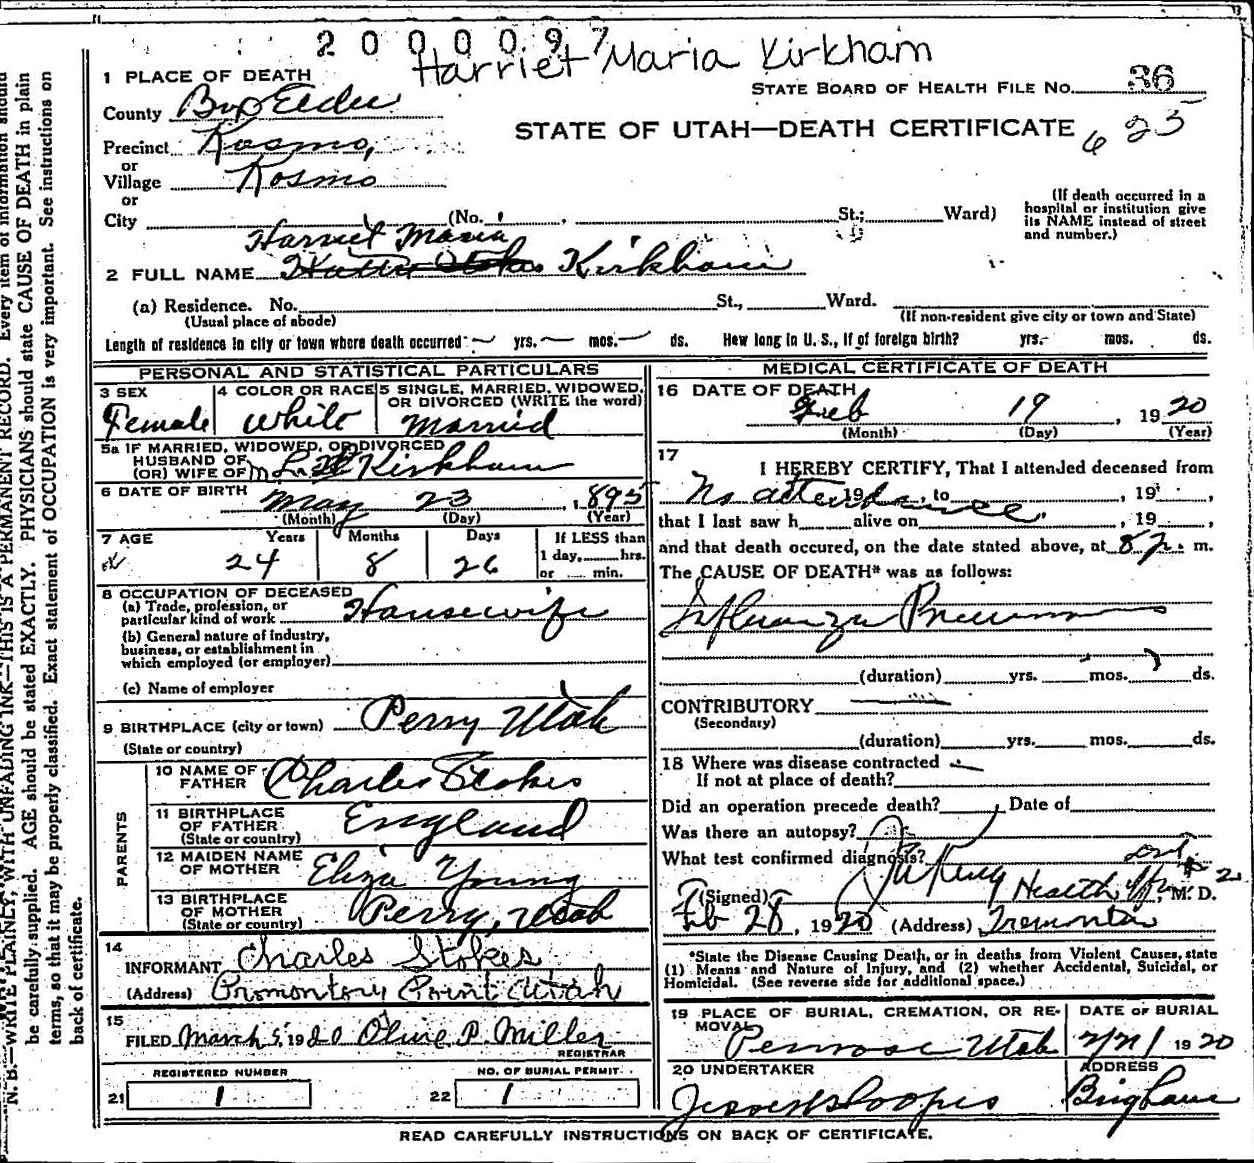 2000097
Harriet Maria Kirkham
1 PLACE OF DEATH
STATE BOARD OF HEALTH FILE NO. 36
County Box Elder
STATE OF UTAH—DEATH CERTIFICATE 625
Precinct Kosmo,
or
Village Kosmo
or
City (No. , St.; Ward)
(If death occurred in a hospital or institution give its NAME instead of street and number.)
Harriet Maria
2 FULL NAME Hattie Stokes Kirkham
(a) Residence. No. St., Ward.
(Usual place of abode) (If non-resident give city or town and State)
Length of residence in city or town where death occurred yrs. mos. ds. How long in U. S., if of foreign birth? yrs. mos. ds.
PERSONAL AND STATISTICAL PARTICULARS
3 SEX Female
4 COLOR OR RACE White
5 SINGLE, MARRIED, WIDOWED, OR DIVORCED (WRITE the word) Married
5a IF MARRIED, WIDOWED, OR DIVORCED
HUSBAND OF
(OR) WIFE OF Kirkham
6 DATE OF BIRTH May 23, 1895
(Month) (Day) (Year)
7 AGE Years Months Days If LESS than
24 8 26 1 day, hrs.
or min.
8 OCCUPATION OF DECEASED
(a) Trade, profession, or
particular kind of work Housewife
(b) General nature of industry,
business, or establishment in
which employed (or employer)
(c) Name of employer
9 BIRTHPLACE (city or town) Perry Utah
(State or country)
PARENTS
10 NAME OF FATHER Charles Stokes
11 BIRTHPLACE OF FATHER England
(State or country)
12 MAIDEN NAME OF MOTHER Eliza Young
13 BIRTHPLACE OF MOTHER Perry, Utah
(State or country)
14
INFORMANT Charles Stokes
(Address) Promontory Point Utah
15
FILED March 5, 1920 Olive P. Miller
REGISTRAR
REGISTERED NUMBER NO. OF BURIAL PERMIT
21 1 22 1
MEDICAL CERTIFICATE OF DEATH
16 DATE OF DEATH
Feb 19, 1920
(Month) (Day) (Year)
17
I HEREBY CERTIFY, That I attended deceased from
No attendance. 19 , to , 19 ,
that I last saw h alive on , 19 ,
and that death occured, on the date stated above, at 8 p. m.
The CAUSE OF DEATH* was as follows:
Influenza Pneumonia
(duration) yrs. mos. ds.
CONTRIBUTORY
(Secondary)
(duration) yrs. mos. ds.
18 Where was disease contracted
If not at place of death?
Did an operation precede death? Date of
Was there an autopsy?
What test confirmed diagnosis?
(Signed) Health , M. D.
Feb 28, 1920 (Address) Tremonton
*State the Disease Causing Death, or in deaths from Violent Causes, state
(1) Means and Nature of Injury, and (2) whether Accidental, Suicidal, or
Homicidal. (See reverse side for additional space.)
19 PLACE OF BURIAL, CREMATION, OR REMOVAL DATE OF BURIAL
Penrose Utah 2/21 1920
20 UNDERTAKER ADDRESS
Brigham
READ CAREFULLY INSTRUCTIONS ON BACK OF CERTIFICATE.
N. B.—WRITE PLAINLY, WITH UNFADING INK—THIS IS A PERMANENT RECORD. Every item of information should
be carefully supplied. AGE should be stated EXACTLY. PHYSICIANS should state CAUSE OF DEATH in plain
terms, so that it may be properly classified. Exact statement of OCCUPATION is very important. See instructions on
back of certificate.